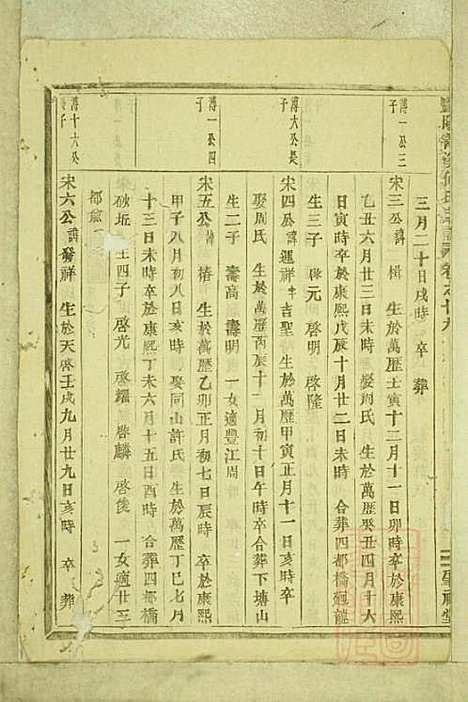 三月二十日戌時 卒 葬
傅一公三子
宋三公諱 楫 生於萬歷壬寅十二月十一日卯時卒於康熙
乙丑六月廿三日未時 娶周氏 生於萬歷癸丑四月十六
日寅時卒於康熙戊辰十月廿二日未時 合葬四都橋
生三子 元 啓明 啓隆
傅六公長子
宋四公諱遇祥字吉聖 生於萬歷甲寅正月十一日亥時卒
娶周氏 生於萬歷丙辰十一月初十日午時卒合葬下塘山
生二子 壽高 壽明 一女適豐江周
傅一公四子
宋五公諱 椿 生於萬歷乙卯正月初七日辰時 卒於康熙
甲子八月初八日亥時 娶同山許氏 生於萬歷丁巳七月
十三日未時卒於康熙丁未六月十五日酉時 合葬四都橋
破坵 生四子 啓光 啓耀 啓麟 啓後 一女適廿三
都
傅十六公長子
宋六公諱發祥 生於天啓壬戌九月廿九日亥時 卒 葬